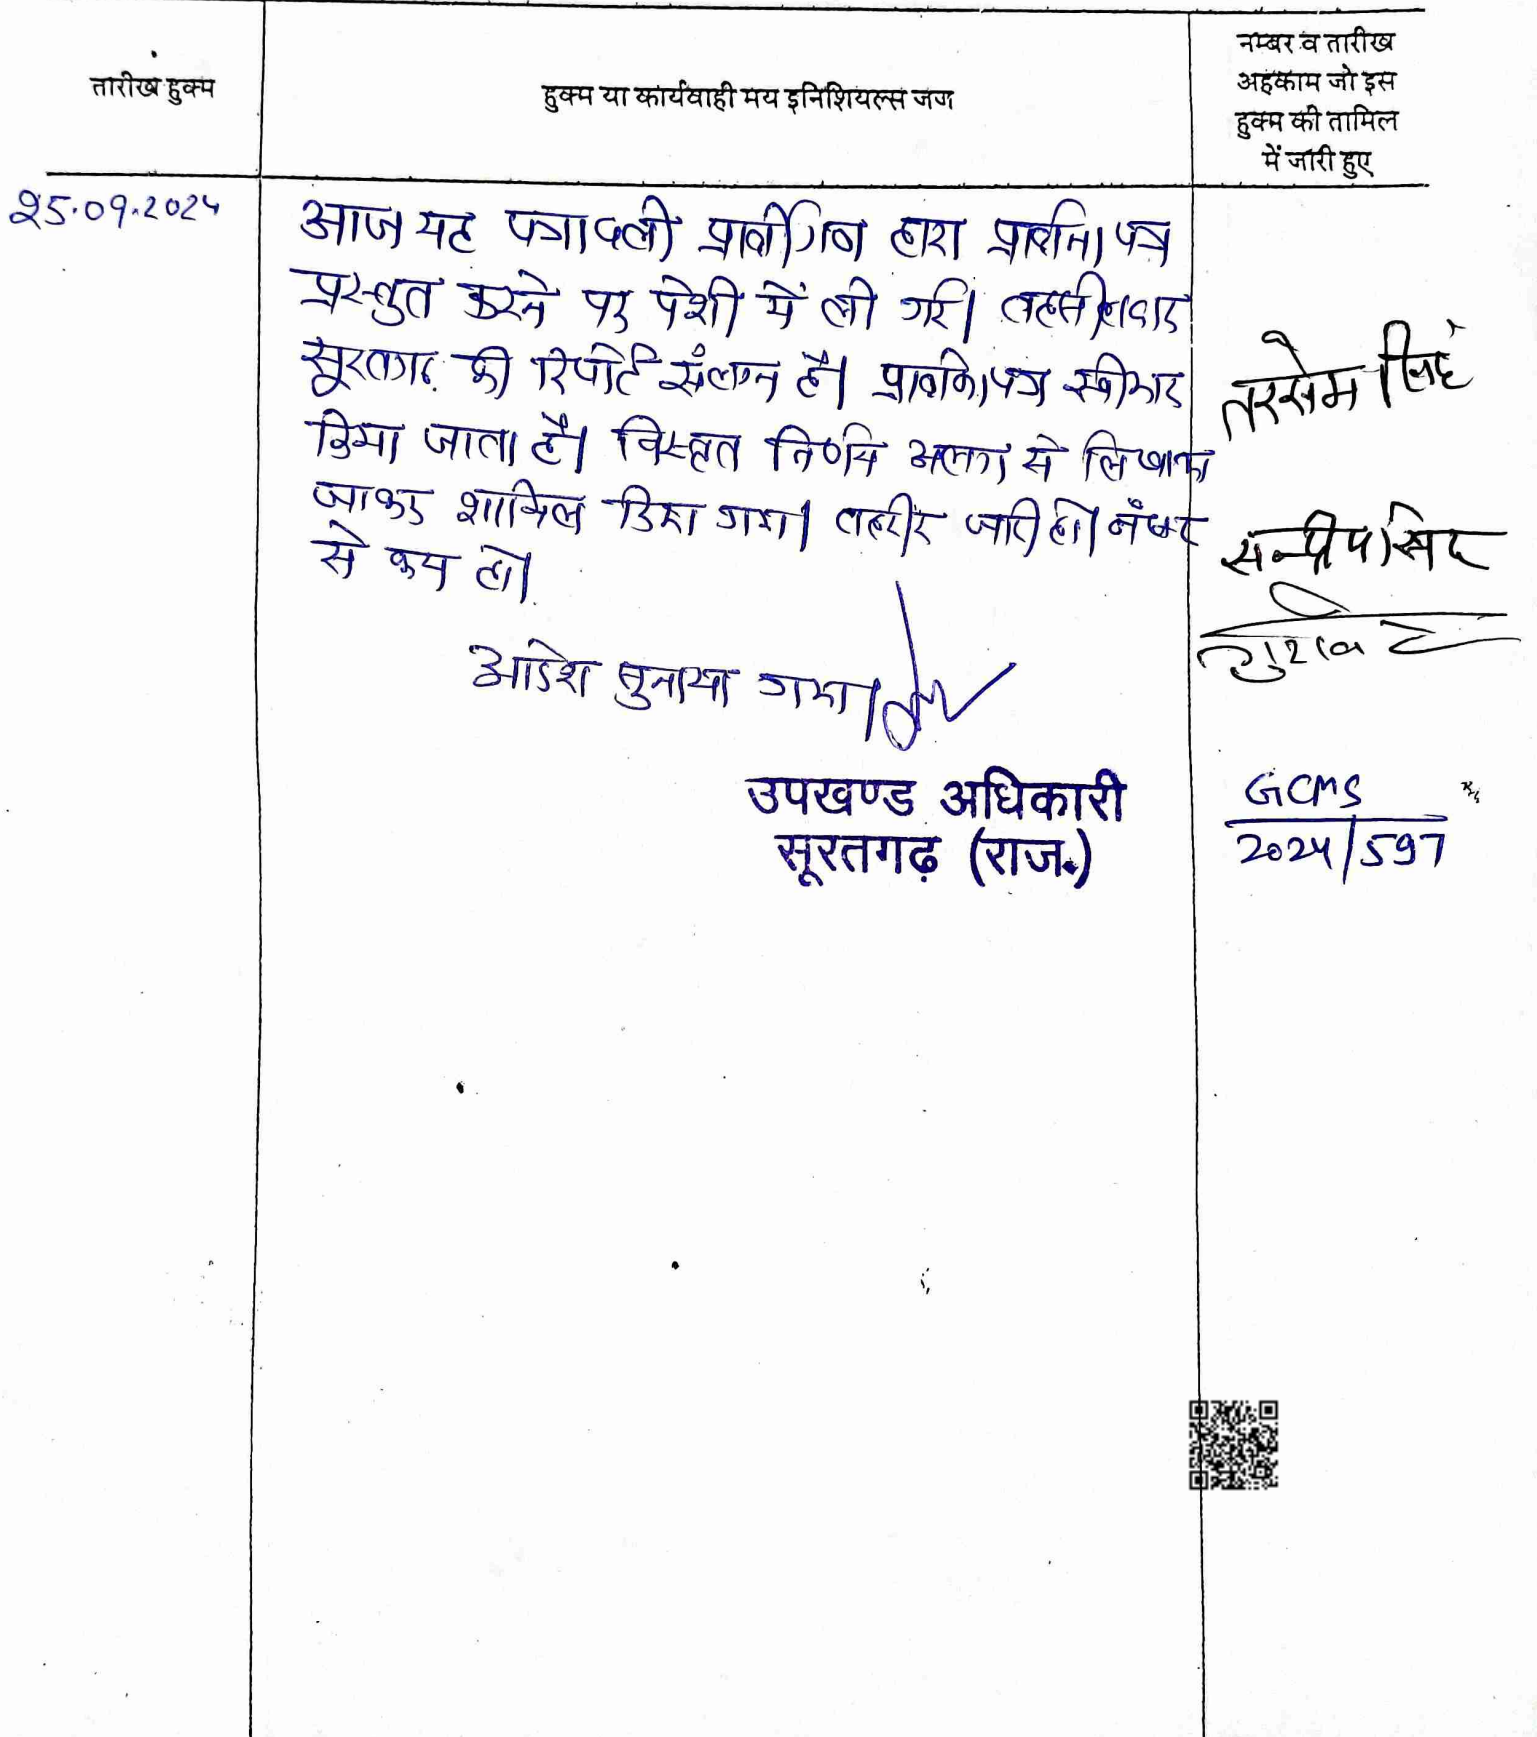 तारीख हुक्म
हुक्म या कार्यवाही मय इनिशियल्स जज
नम्बर व तारीख
अहकाम जो इस
हुक्म की तामिल
में जारी हुए
25.09.2024
आज यह पत्रावली प्रार्थीगण द्वारा प्रार्थना पत्र
प्रस्तुत करने पर पेशी में ली गई। तहसीलदार
सूरतगढ़ की रिपोर्ट संलग्न है। प्रार्थना पत्र स्वीकार
किया जाता है। विस्तृत निर्णय अलग से लिखाया
जाकर शामिल किया गया। तहरीर जारी हो। नंबर
से कम हो।
आदेश सुनाया गया।
उपखण्ड अधिकारी
सूरतगढ़ (राज.)
तरसेम सिंह
सन्दीप सिंह
GCMS
2024/597